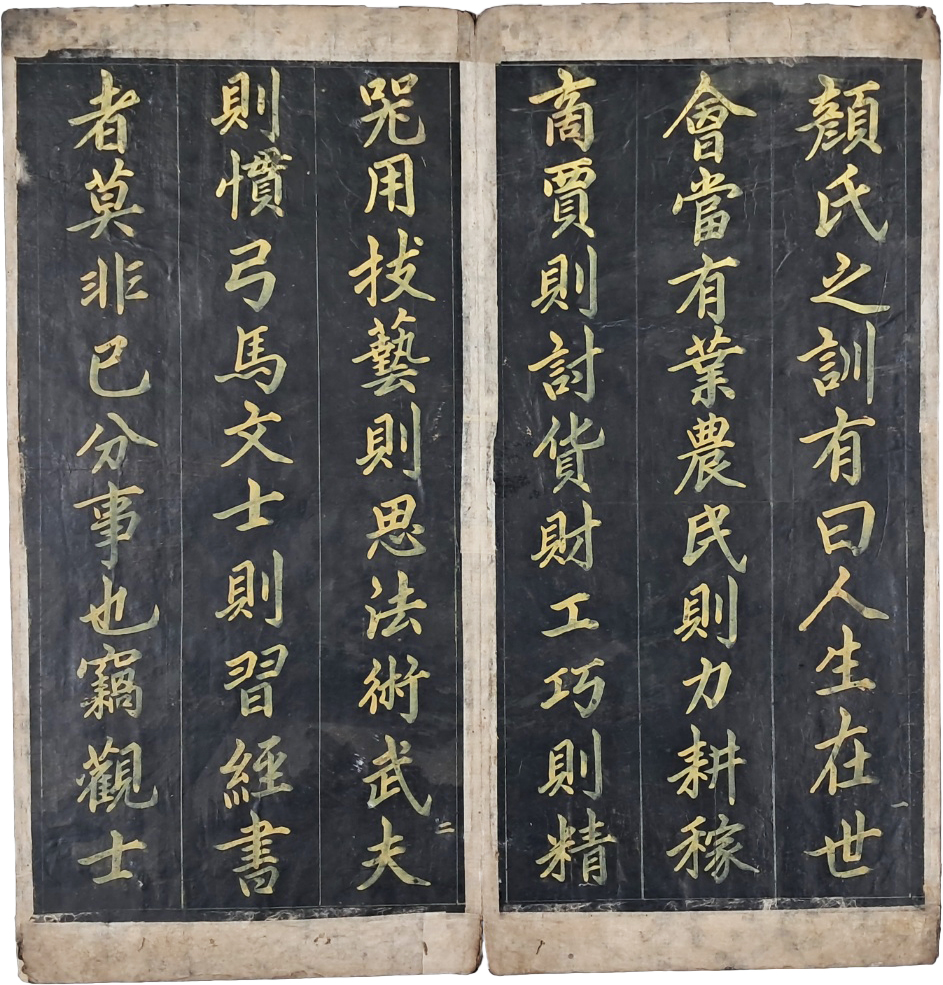 顏氏之訓有曰人生在世
一
會當有業農民則力耕稼
商賈則討貨財工巧則精
器用技藝則思法術武夫
二
則慣弓馬文士則習經書
者莫非已分事也竊觀士